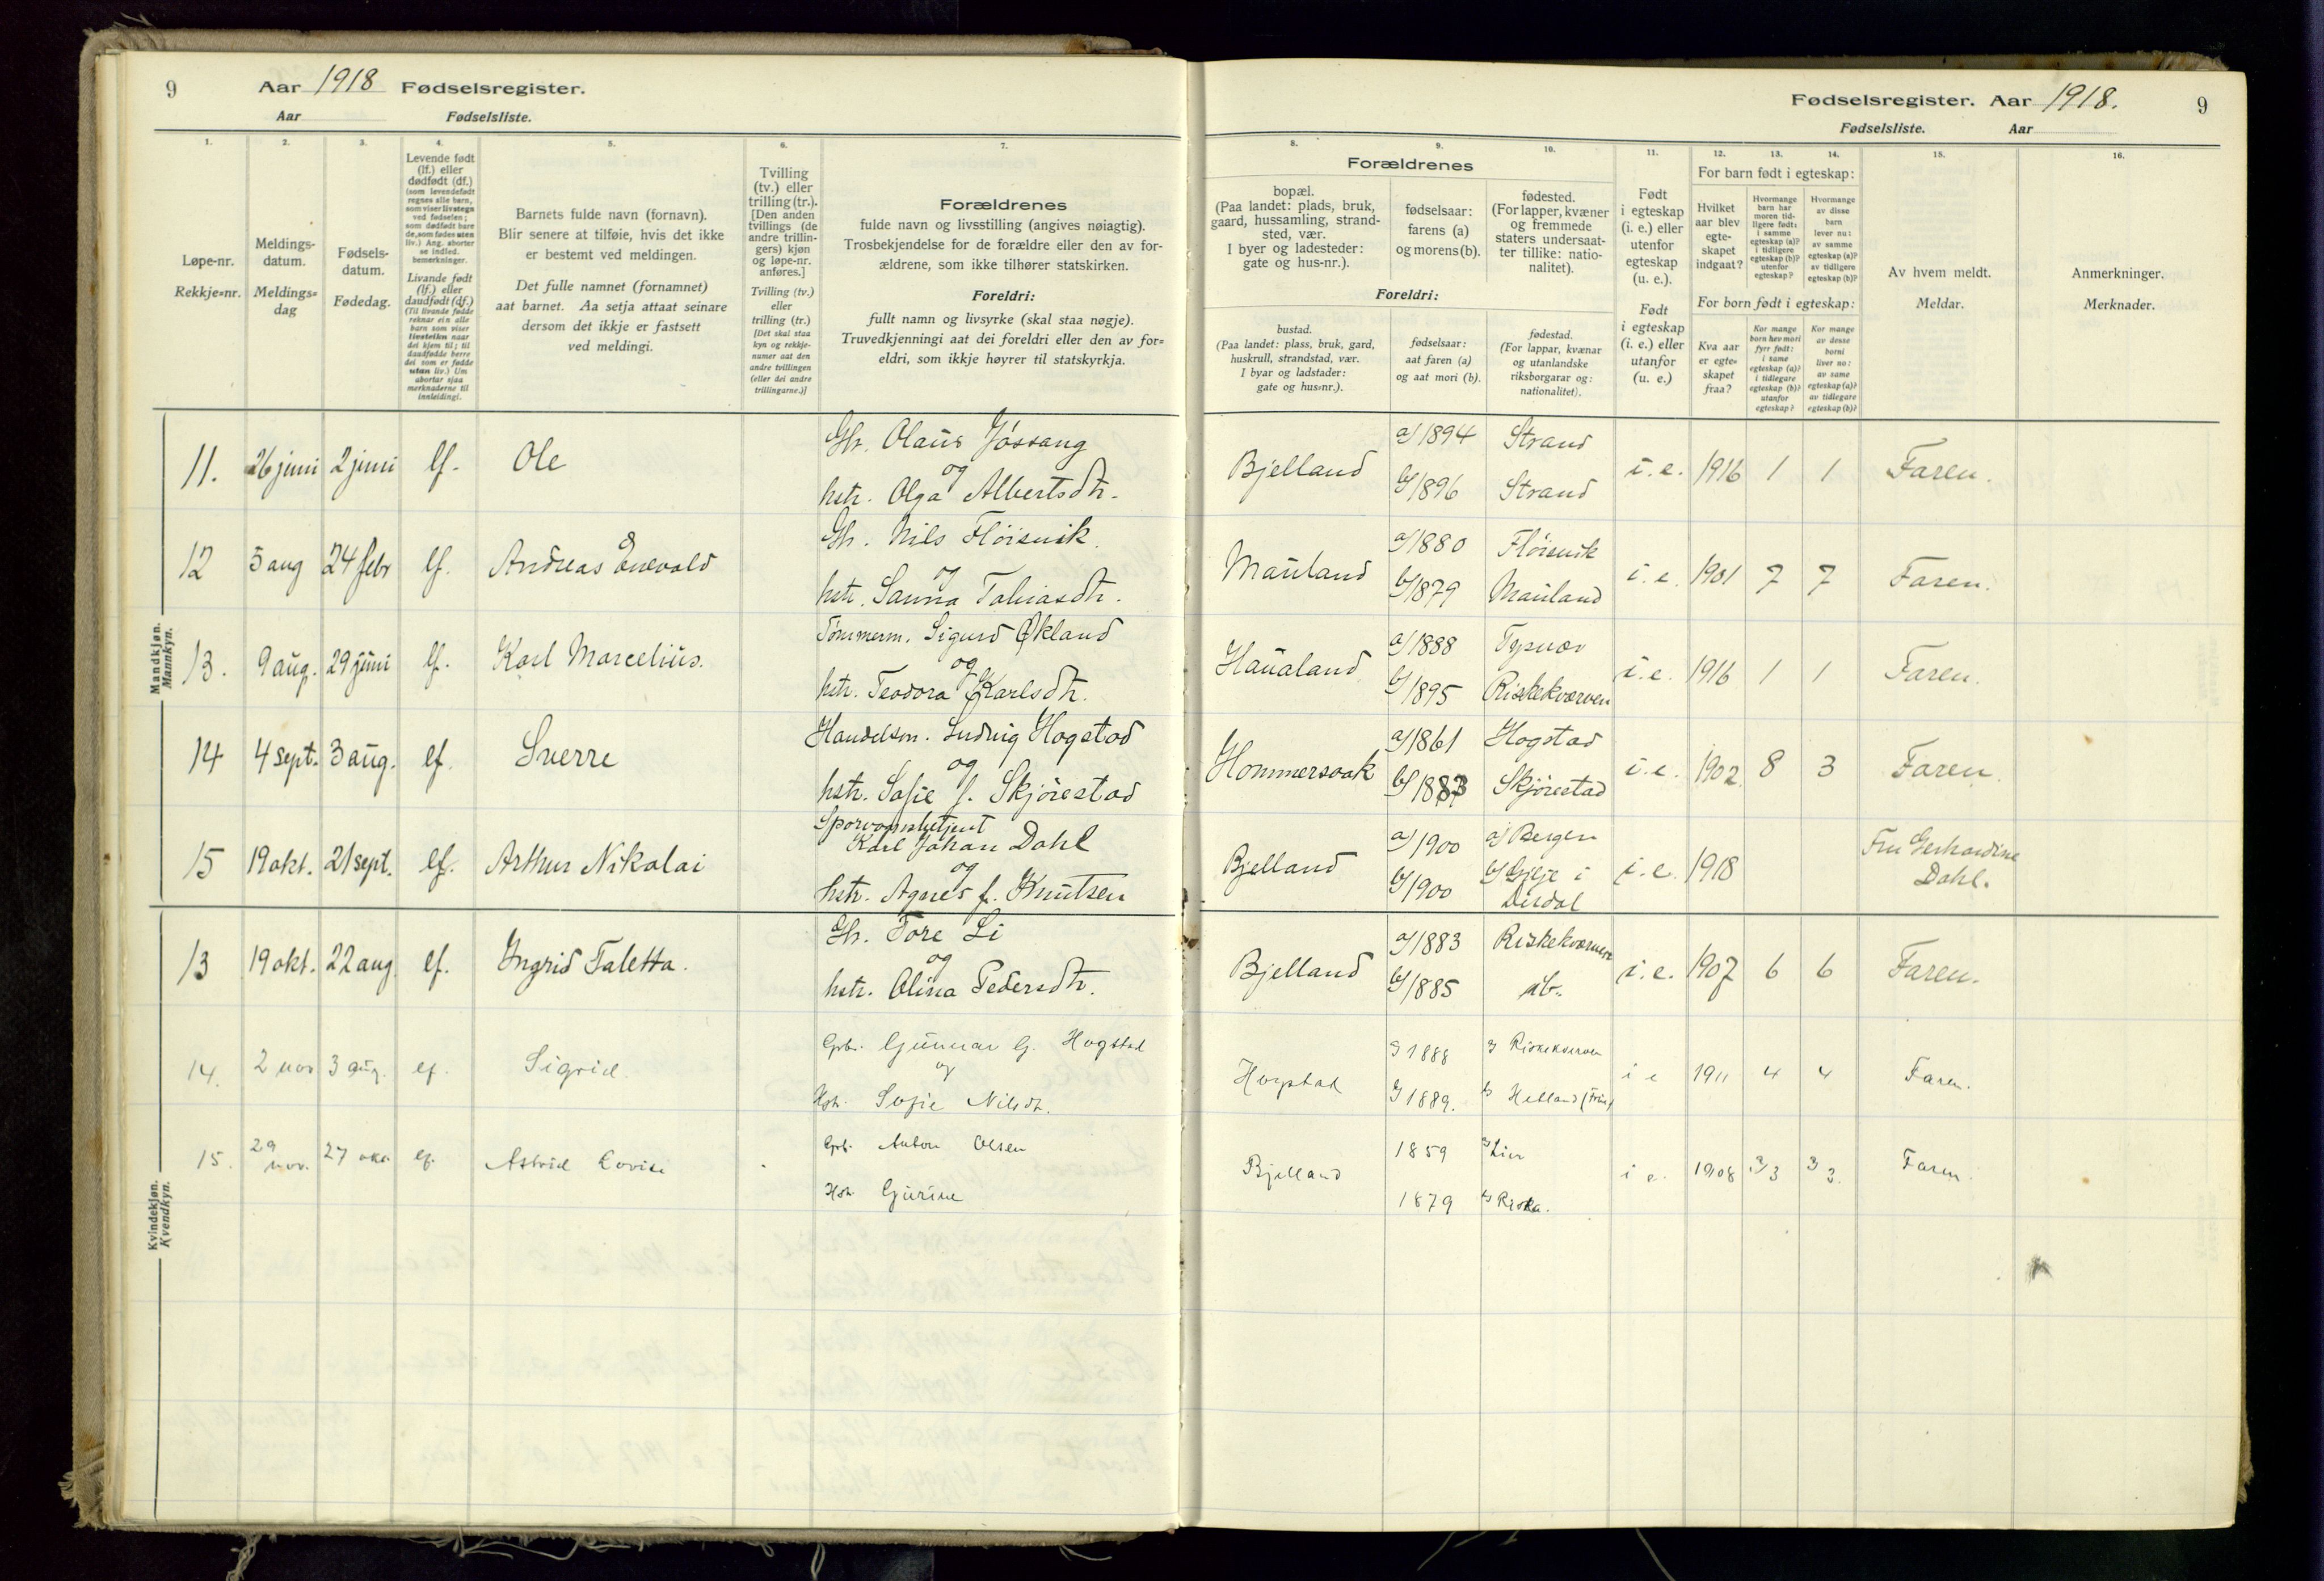 9
Aar 1918 Fødselsregister.
Aar Fødselsliste.
1.
Løpe-nr.
Rekkje=nr.
2.
Meldings-
datum.
Meldings=
dag
3.
Fødsels-
datum.
Fødedag.
4.
Levende født
(lf.) eller
dødfødt (df.)
(som levendefødt
regnes alle barn,
som viser livstegn
ved fødselen;
som dødfødt bare
de, som fødes uten
liv.) Ang. aborter
se indled.
bemerkninger.
Livande født
(lf.) eller
daudfødt (df.)
(Til livande fødde
reknar ein alle
barn som viser
livsteikn naar
dei kjem til; til
daudfødde berre
dei som er fødde
utan liv.) Um
abortar sjaa
merknaderne til
innleidingi.
5.
Barnets fulde navn (fornavn).
Blir senere at tilføie, hvis det ikke
er bestemt ved meldingen.
Det fulle namnet (fornamnet)
aat barnet. Aa setja attaat seinare
dersom det ikkje er fastsett
ved meldingi.
6.
Tvilling
(tv.) eller
trilling (tr.).
[Den anden
tvillings (de
andre trillin-
gers) kjøn
og løpe-nr.
anføres.]
Tvilling (tv.)
eller
trilling (tr.)
[Det skal staa
kyn og rekkje-
numer aat den
andre tvillingen
(eller dei andre
trillingarne.)]
7.
Forældrenes
fulde navn og livsstilling (angives nøiagtig).
Trosbekjendelse for de forældre eller den av for-
ældrene, som ikke tilhører statskirken.
Foreldri:
fullt namn og livsyrke (skal staa nøgje).
Truvedkjenningi aat dei foreldri eller den av for=
eldri, som ikkje høyrer til statskyrkja.
Mandkjøn.
Mannkyn.
11. 26 juni 2 juni lf. Ole
Gbr. Olaus Jøssang
og
hstr. Olga Albertsdtr.
12 5 aug 24 febr lf. Andreas Enevald
Gbr. Nils Fløisvik.
og
hstr. Sanna Tobiasdtr.
13. 9 aug. 29 juni lf. Karl Marcelius.
Tømmerm. Sigurd Økland
og
hstr. Teodora Karlsdtr.
14 4 sept. 3 aug. lf. Sverre
Handelsm. Ludvig Hogstad
og
hstr. Sofie f. Skjørestad
15 19 okt. 21 sept. lf. Arthur Nikolai
Sporvognsbetjent
Karl Johan Dahl
og
hstr. Agnes f. Knutsen
Kvindekjøn.
Kvendkyn.
13 19 okt. 22 aug. lf. Ingrid Taletta.
Gbr. Tore Li
og
hstr. Olina Pedersdtr.
14. 2 nov 3 aug. lf. Sigrid.
Gbr. Gunnar G. Hogstad
og
Hstr. Sofie Nilsdtr.
15. 29 nov. 27 okt. lf. Astrid Lovise
Gbr. Anton Olsen
Hstr. Gurine
Fødselsregister. Aar 1918. 9
Fødselsliste. Aar
8.
Forældrenes
bopæl.
(Paa landet: plads, bruk,
gaard, hussamling, strand-
sted, vær.
I byer og ladesteder:
gate og hus-nr.).
Foreldri:
bustad.
(Paa landet: plass, bruk, gard,
huskrull, strandstad, vær.
I byar og ladstader:
gate og hus=nr.).
9.
fødselsaar:
farens (a)
og morens (b).
fødselsaar:
aat faren (a)
og aat mori (b).
10.
fødested.
(For lapper, kvæner
og fremmede
staters undersaat-
ter tillike: natio-
nalitet).
fødestad.
(For lappar, kvænar
og utanlandske
riksborgarar og:
nationalitet).
11.
Født
i egteskap
(i. e.) eller
utenfor
egteskap
(u. e.).
Født
i egteskap
(i. e.) eller
utanfor
(u. e.)
12. 13. 14.
For barn født i egteskap:
Hvilket
aar blev
egte-
skapet
indgaat?
Hvormange
barn har
moren tid-
ligere født:
i samme
egteskap (a)?
i tidligere
egteskap (b)?
utenfor
egteskap?
Hvormange
av disse
barn
lever nu:
av samme
egteskap (a)?
av tidligere
egteskap (b)?
For born født i egteskap:
Kva aar
er egte=
skapet
fraa?
Kor mange
born hev mori
fyrr født:
i same
egteskap (a)?
i tidlegare
egteskap (b)?
utanfor
egteskap?
Kor mange
av desse
borni
liver no:
av same
egteskap (a)?
av tidlegare
egteskap (b)?
15.
Av hvem meldt.
Meldar.
16.
Anmerkninger.
Merknader.
Bjelland a/1894 Strand i. e. 1916 1 1 Faren.
b/1896 Strand
Mauland a/1880 Fløisvik i. e. 1901 7 7 Faren.
b/1879 Mauland
Haualand a/1888 Tysvær i. e. 1916 1 1 Faren.
b/1895 Riskekværven
Hommersaak a/1861 Hogstad i. e. 1902 8 3 Faren.
b/1883 Skjørestad
Bjelland a/1900 a/ Bergen i. e. 1918 Fru Gerhardine
b/1900 b/ Gilje i Dahl.
Dirdal
Bjelland a/1883 Riskekværven i. e. 1907 6 6 Faren.
b/1885 ib.
Hogstad a/1888 a/ Riskekværven i e 1911 4 4 Faren.
b/1889. b/ Helland
Bjelland 1859 a/ Lier i e. 1908 a/3 a/3. Faren.
1879 b/ Riska.